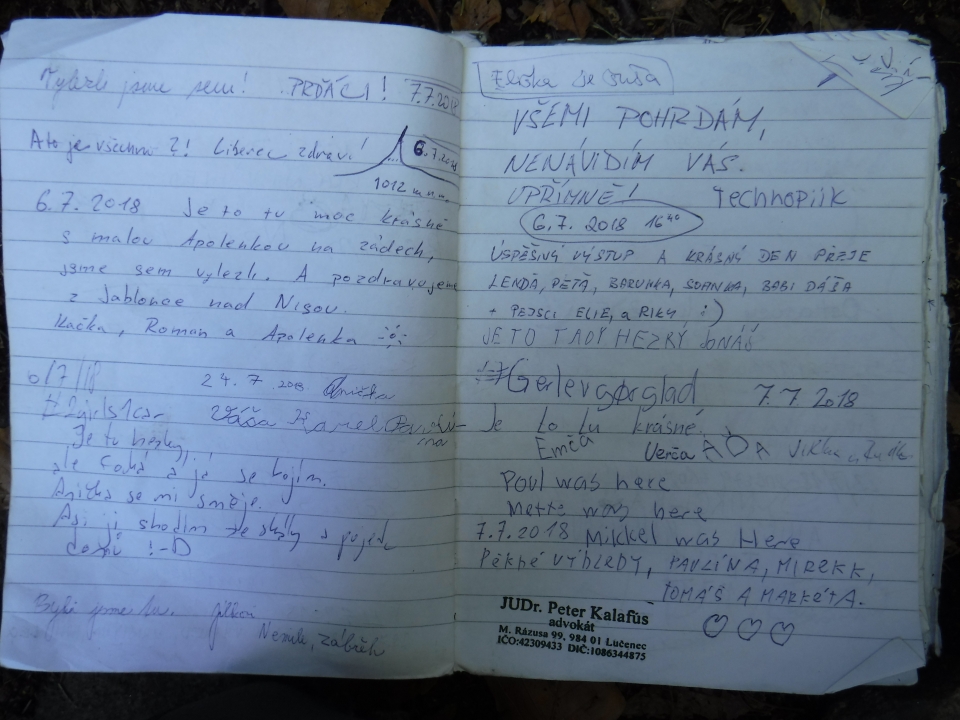 Vylezli jsme sem! PRĎÁCI! 7.7.2018
A to je všechno?! Liberec zdraví! ... 6.7.2018
1012 m.n.m.
6.7.2018 Je to tu moc krásné
s malou Apolenkou na zádech,
jsme sem vylezli. A pozdravujeme
z Jablonce nad Nisou.
Kačka, Roman a Apolenka
6/7/18 24.7.2018
#2girls1car Váša Karel
Je tu hezky,
ale fouká a já se bojím.
Anička se mi směje.
Asi ji shodím ze skály a pojedu
domů !-D
Byli jsme tu.
Zábřeh
Eliška je
VŠEMI POHRDÁM,
NENÁVIDÍM VÁS.
UPŘÍMNĚ! Technopiik
6.7. 2018 16⁴⁰
ÚSPĚŠNÝ VÝSTUP A KRÁSNÝ DEN PŘEJE
LENDA, PÉŤA, BARUNKA, BABI DÁŠA
+ PEJSCI ELIE, a RIKY :)
JE TO TADY HEZKÝ JONÁŠ
Gerlevgørglad 7.7 2018
Je to tu krásné.
Emča Verča ADA
Poul was here
Mette was here
7.7.2018 Mikkel was Here
PĚKNÉ VÝHLEDY, PAVLÍNA, MIREKK,
TOMÁŠ A MARKÉTA.
JUDr. Peter Kalafus
advokát
M. Rázusa 99, 984 01 Lučenec
IČO:42309433 DIČ:1086344875